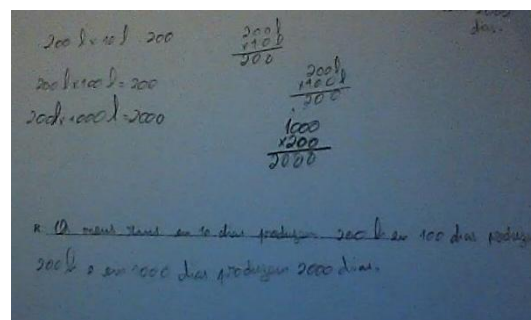 200 l x 10 l 200
200 l x 100 l = 200
200 l x 1000 l = 2000
200 l
x 10 l
200
200 l
x 100 l
200
1000
x200
2000
dias.
R: O meus em 10 dias produzem 200 l em 100 dias
200 l e em 1000 dias produzem 2000 dias.